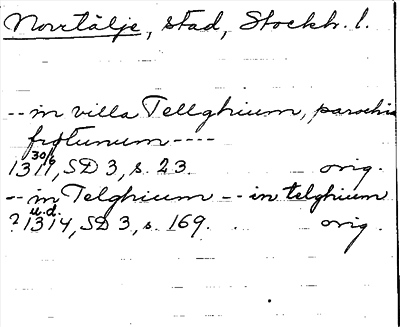 Norrtälje, stad, Stockh. l.
-- in villa Tellghium, parochia
frøtunum ----
1311 30/6, SD 3, s. 23. orig.
-- in Telghium -- in telghium
? 1314 u.d., SD 3, s. 169. orig.